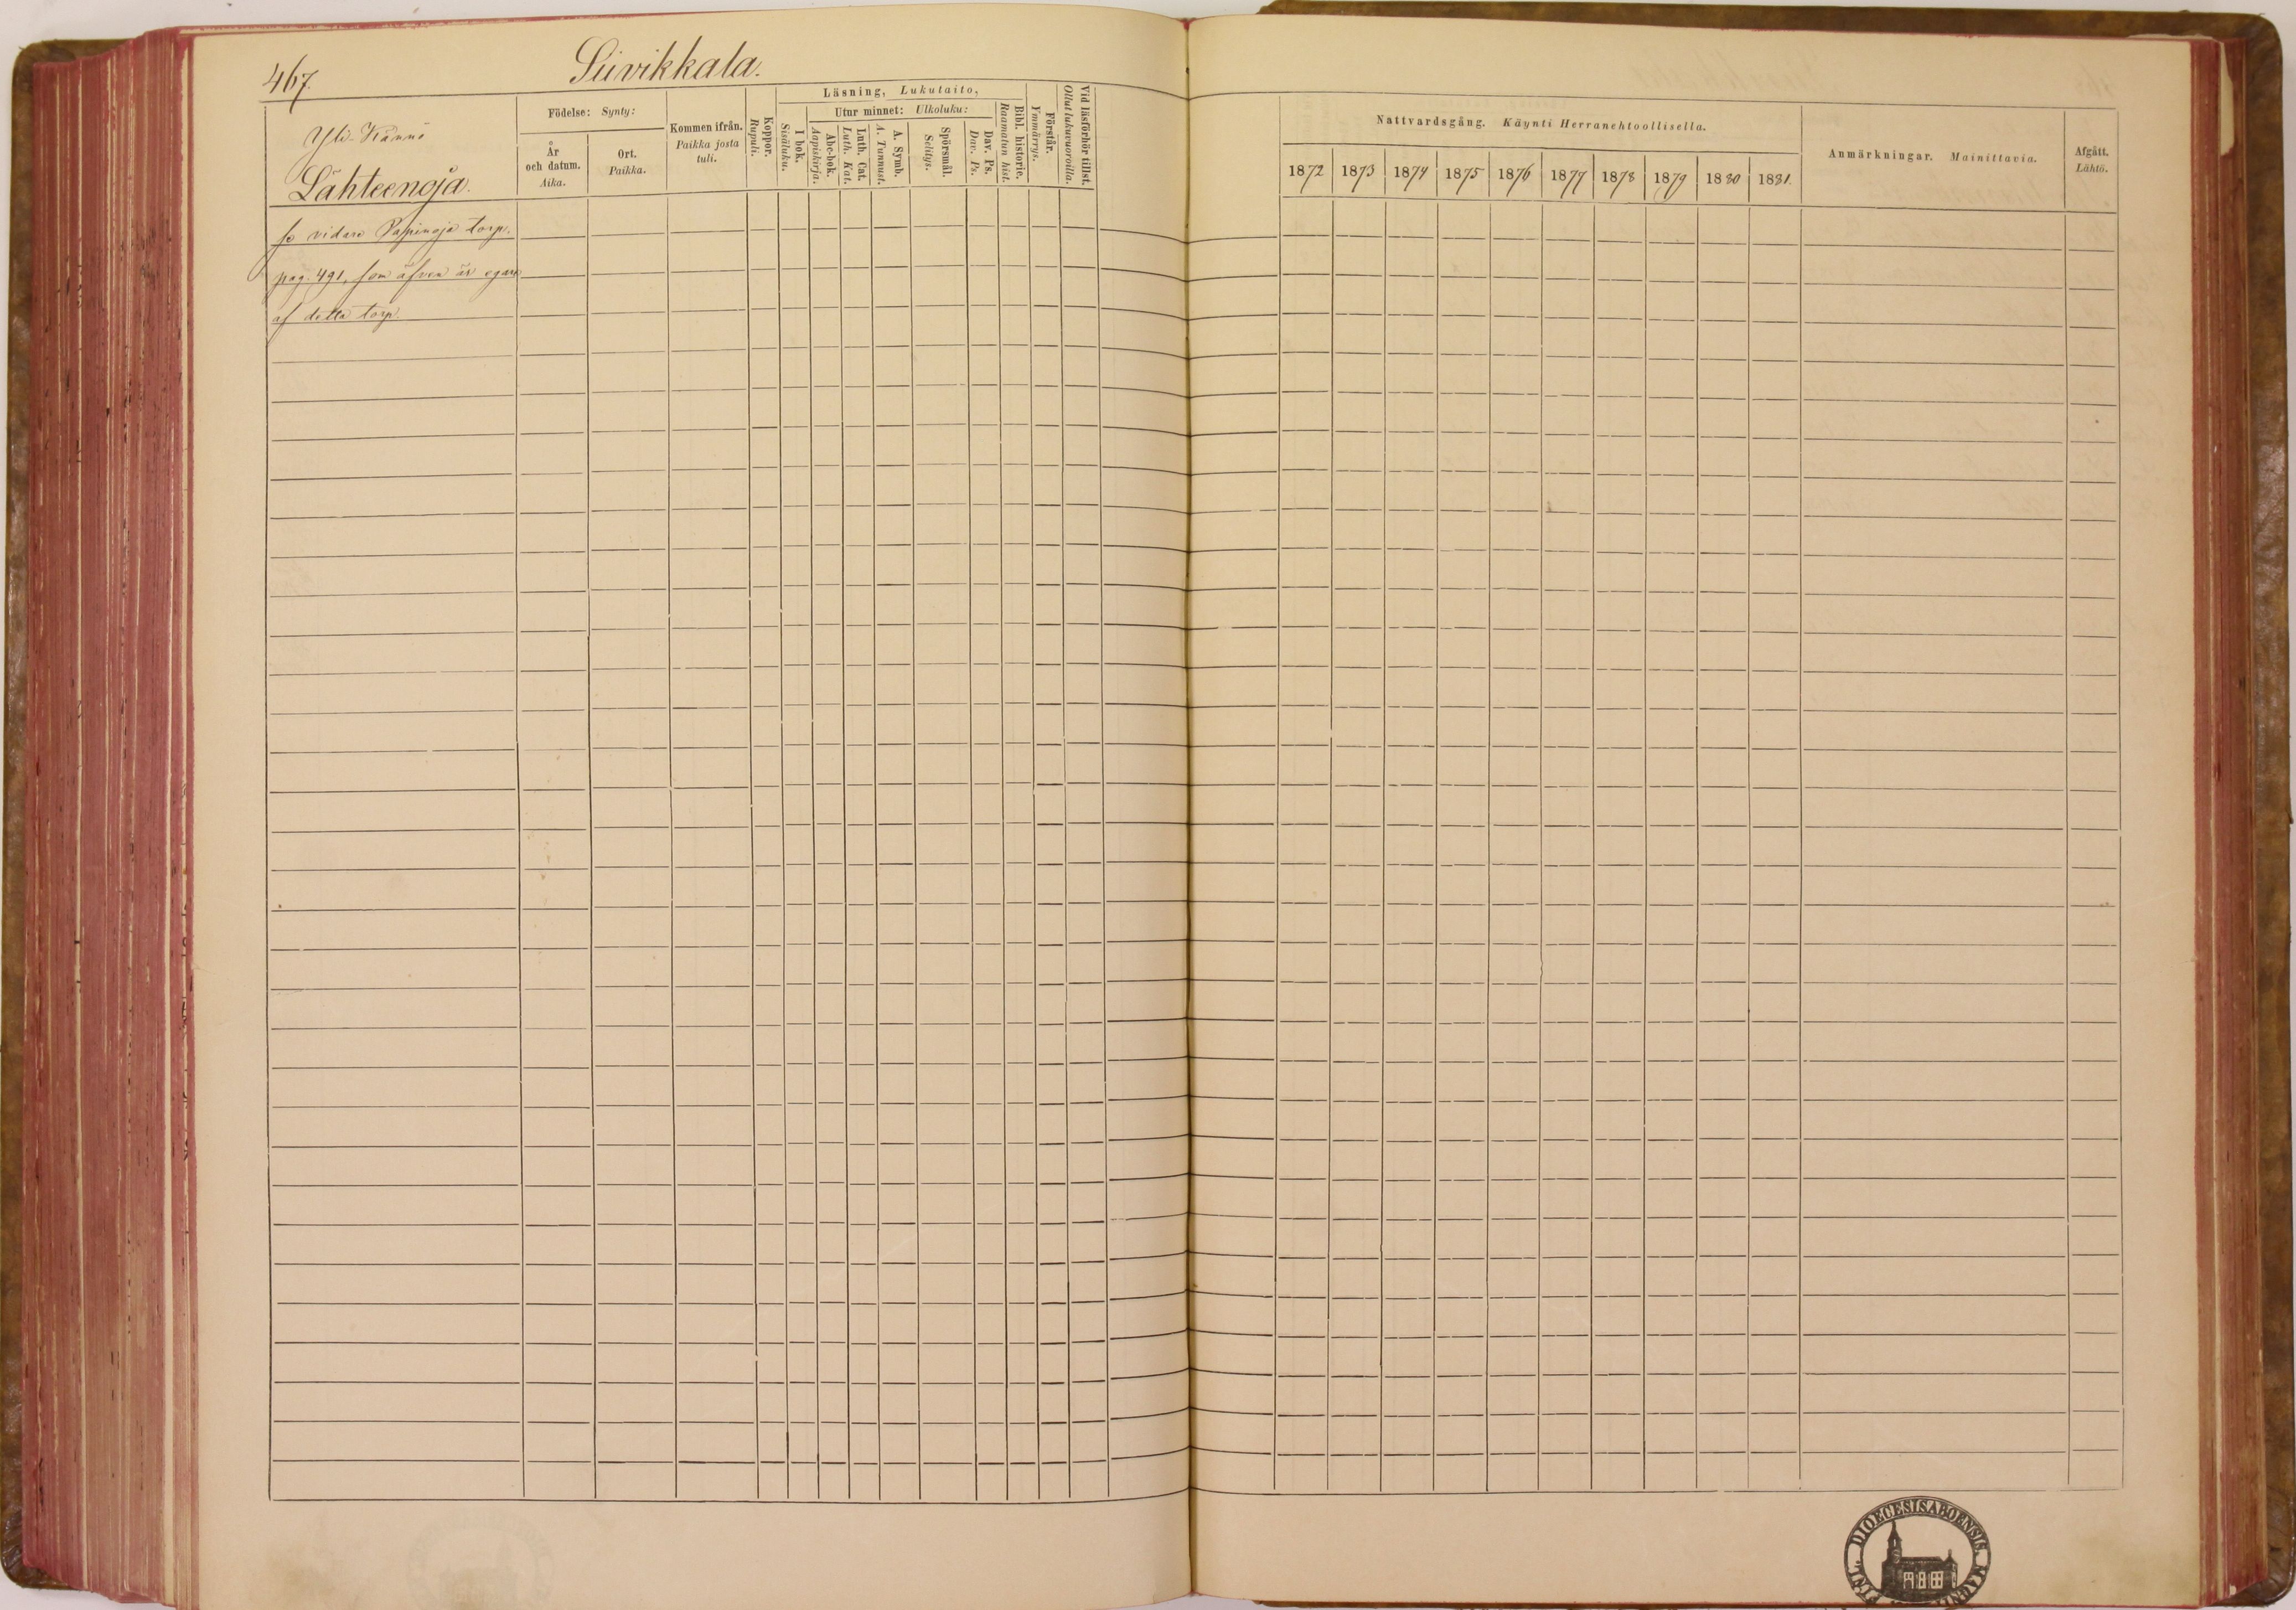 467.
Siivikkala.
Yli-Känni
Lähteenoja.
se vidare Papinoja torp.
pag. 491, som äfven är egare
af detta torp.
Födelse: Synty:
År
och datum.
Aika.
Ort.
Paikka.
Kommen ifrån.
Paikka josta
tuli.
Koppor.
Rupuli.
Läsning, Lukutaito,
I bok.
Sisäluku.
Utur minnet: Ulkoluku:
Abc-bok.
Aapiskirja.
Luth. Cat.
Luth. Kat.
A. Symb.
A. Tunnust.
Spörsmål.
Selitys.
Dav. Ps.
Dav. Ps.
Bibl. historie.
Raamatun hist.
Förstår.
Ymmärrys.
Vid läsförhör tillst.
Ollut lukuvuoroilla.
Nattvardsgång. Käynti Herranehtoollisella.
1872 1873 1874 1875 1876 1877 1878 1879 1880 1881.
Anmärkningar. Mainittavia.
Afgått.
Lähtö.
DIOECESIS ABOENSIS